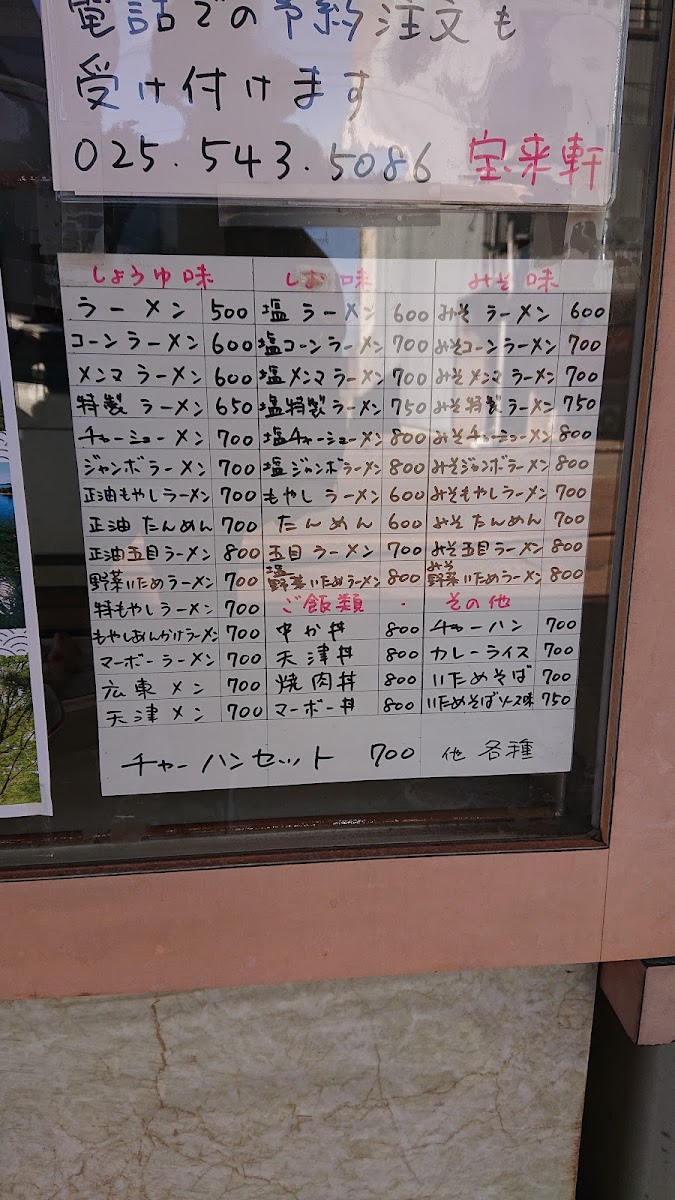 電話での予約注文も
受け付けます
025.543.5086 宝来軒
しょうゆ味 しお味 みそ味
ラーメン 500 塩ラーメン 600 みそラーメン 600
コーンラーメン 600 塩コーンラーメン 700 みそコーンラーメン 700
メンマラーメン 600 塩メンマラーメン 700 みそメンマラーメン 700
特製ラーメン 650 塩特製ラーメン 750 みそ特製ラーメン 750
チャーシューメン 700 塩チャーシューメン 800 みそチャーシューメン 800
ジャンボラーメン 700 塩ジャンボラーメン 800 みそジャンボラーメン 800
正油もやしラーメン 700 もやしラーメン 600 みそもやしラーメン 700
正油たんめん 700 たんめん 600 みそたんめん 700
正油五目ラーメン 800 五目ラーメン 700 みそ五目ラーメン 800
野菜いためラーメン 700 塩野菜いためラーメン 800 みそ野菜いためラーメン 800
特もやしラーメン 700 ご飯類 ・ その他
もやしあんかけラーメン 700 中か丼 800 チャーハン 700
マーボーラーメン 700 天津丼 800 カレーライス 700
広東メン 700 焼肉丼 800 いためそば 700
天津メン 700 マーボー丼 800 いためそばソース味 750
チャーハンセット 700 他各種